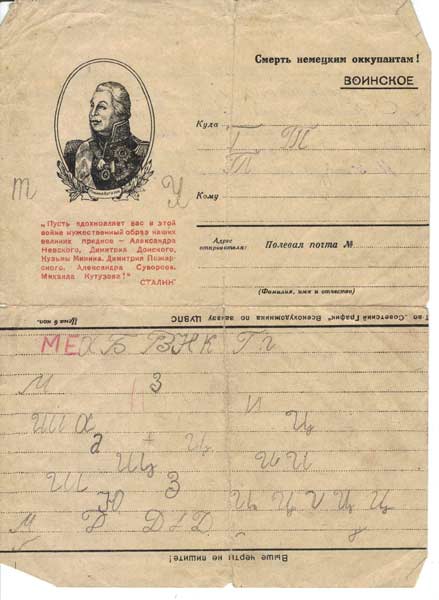 Смерть немецким оккупантам!
ВОИНСКОЕ
Куда
Г П
П
т
И
Кому
„Пусть вдохновляет вас в этой
войне мужественный образ наших
великих предков — Александра
Невского, Димитрия Донского,
Кузьмы Минина, Димитрия Пожар-
ского, Александра Суворова,
Михаила Кутузова!"
СТАЛИН
Адрес
отправителя:
Полевая почта №
(Фамилия, имя и отчество)
Т-во „Советский График" Всекохудожника по заказу ЦУВПС
Цена 5 коп.
МЕ Б В Н К Г г
М З
И
Ш а Ц
а + Ц
Ш И И
Ш З
Ю Ц Ц Ц Ц
М Д Д
Выше черты не пишите!